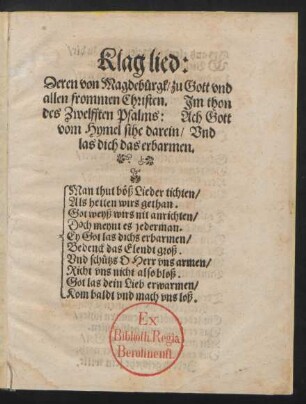 Klag lied:
Deren von Magdebürgk/ zu Gott vnd
allen frommen Christen. Im thon
des Zwelfften Psalms: Ach Gott
vom Hymel sihe darein/ Vnd
las dich das erbarmen.
Man thut böß Lieder tichten/
Als hetten wirs gethan.
Got weyß wirs nit anrichten/
Doch meynt es jederman.
Ey Got las dichs erbarmen/
Bedenck das Elendt groß.
Vnd schütz O Herr vns armen/
Richt vns nicht also bloß.
Got las dein Lieb erwarmen/
Kom baldt vnd mach vns loß.
Ex
Biblioth. Regia
Berolinensi.